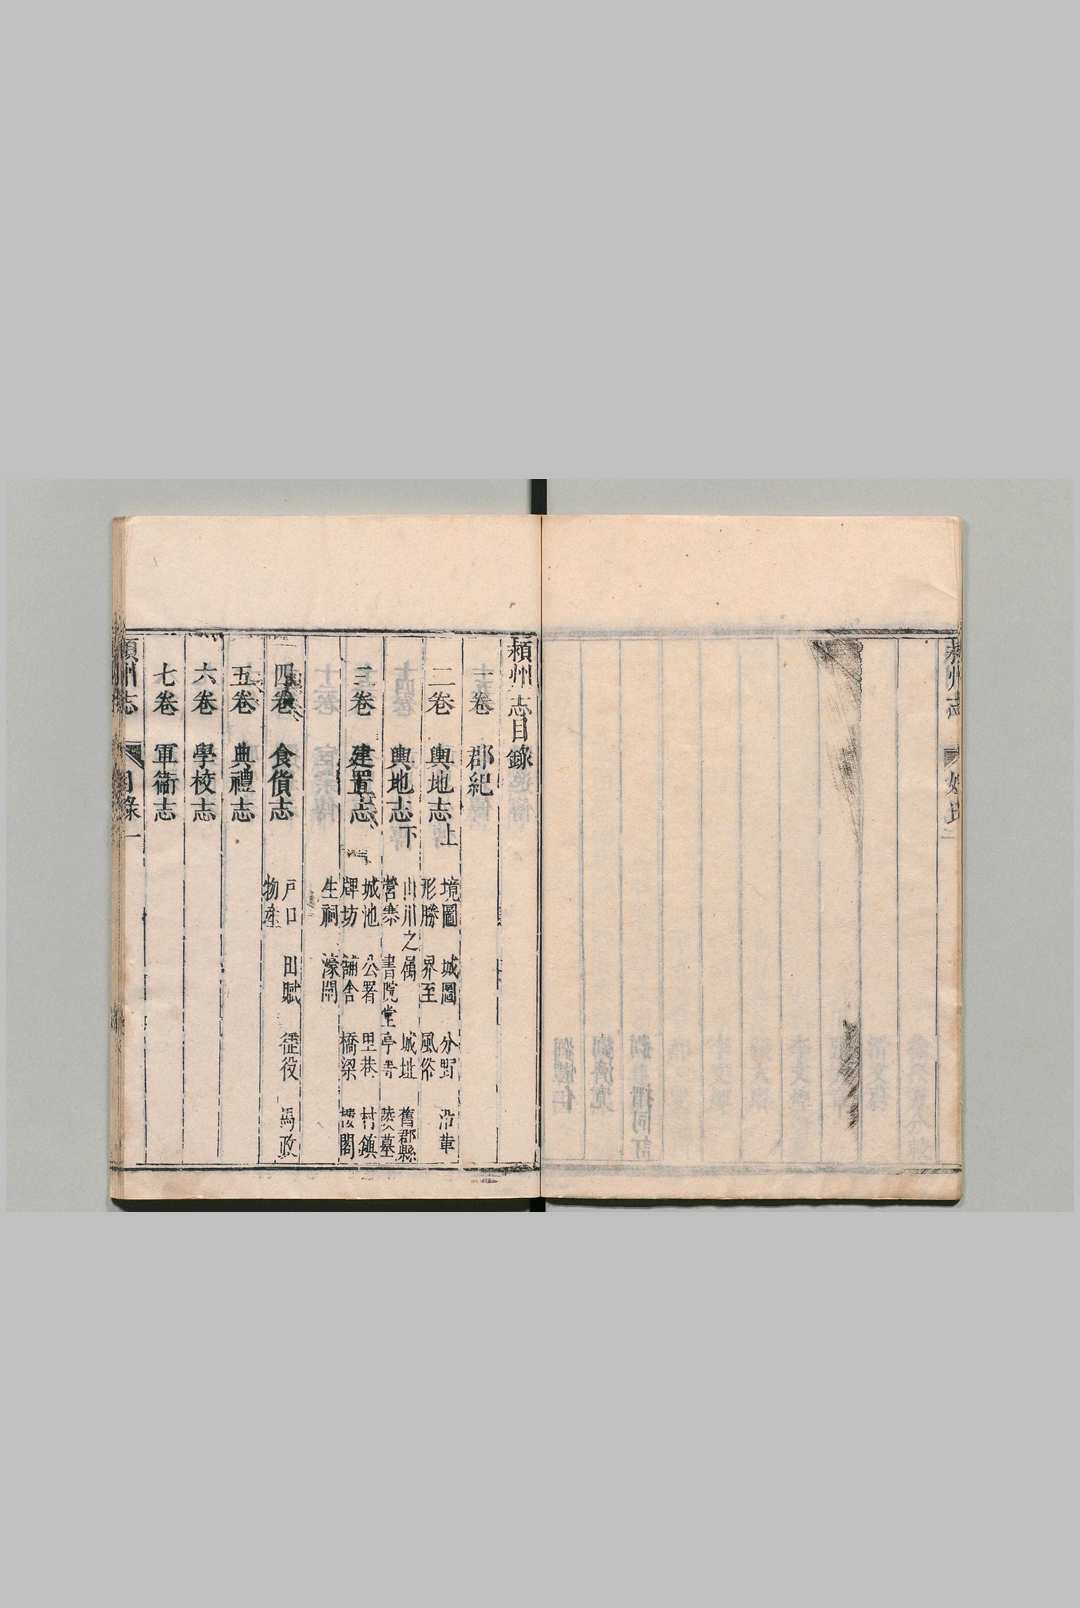 潁州志目錄
一卷 郡紀
二卷 輿地志上 境圖 城圖 分野 沿革
形勝 界至 風俗
輿地志下 山川之屬 城址 舊郡縣
營寨 書院堂亭 陵墓
三卷 建置志 城池 公署 里巷 村鎮
牌坊 舖舍 橋梁 樓閣
生祠 濠閘
四卷 食貨志 戶口 田賦 徭役 馬政
物産
五卷 典禮志
六卷 學校志
七卷 軍衞志
潁州志 目錄 一